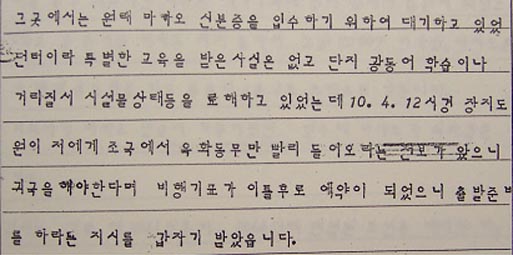 그곳에서는 원래 마카오 신분증을 입수하기 위하여 대기하고 있었
던터이라 특별한 교육을 받은사실은 없고 단지 광동어 학습이나
거리질서 시설물상태등을 료해하고 있었는데 10. 4. 12시경 장지도
원이 저에게 조국에서 옥화동무만 빨리 들어오라는 전보가 왔으니
귀국을 해야한다며 비행기표가 이틀후로 예약이 되었으니 출발준비
를 하라는 지시를 갑자기 받았읍니다.